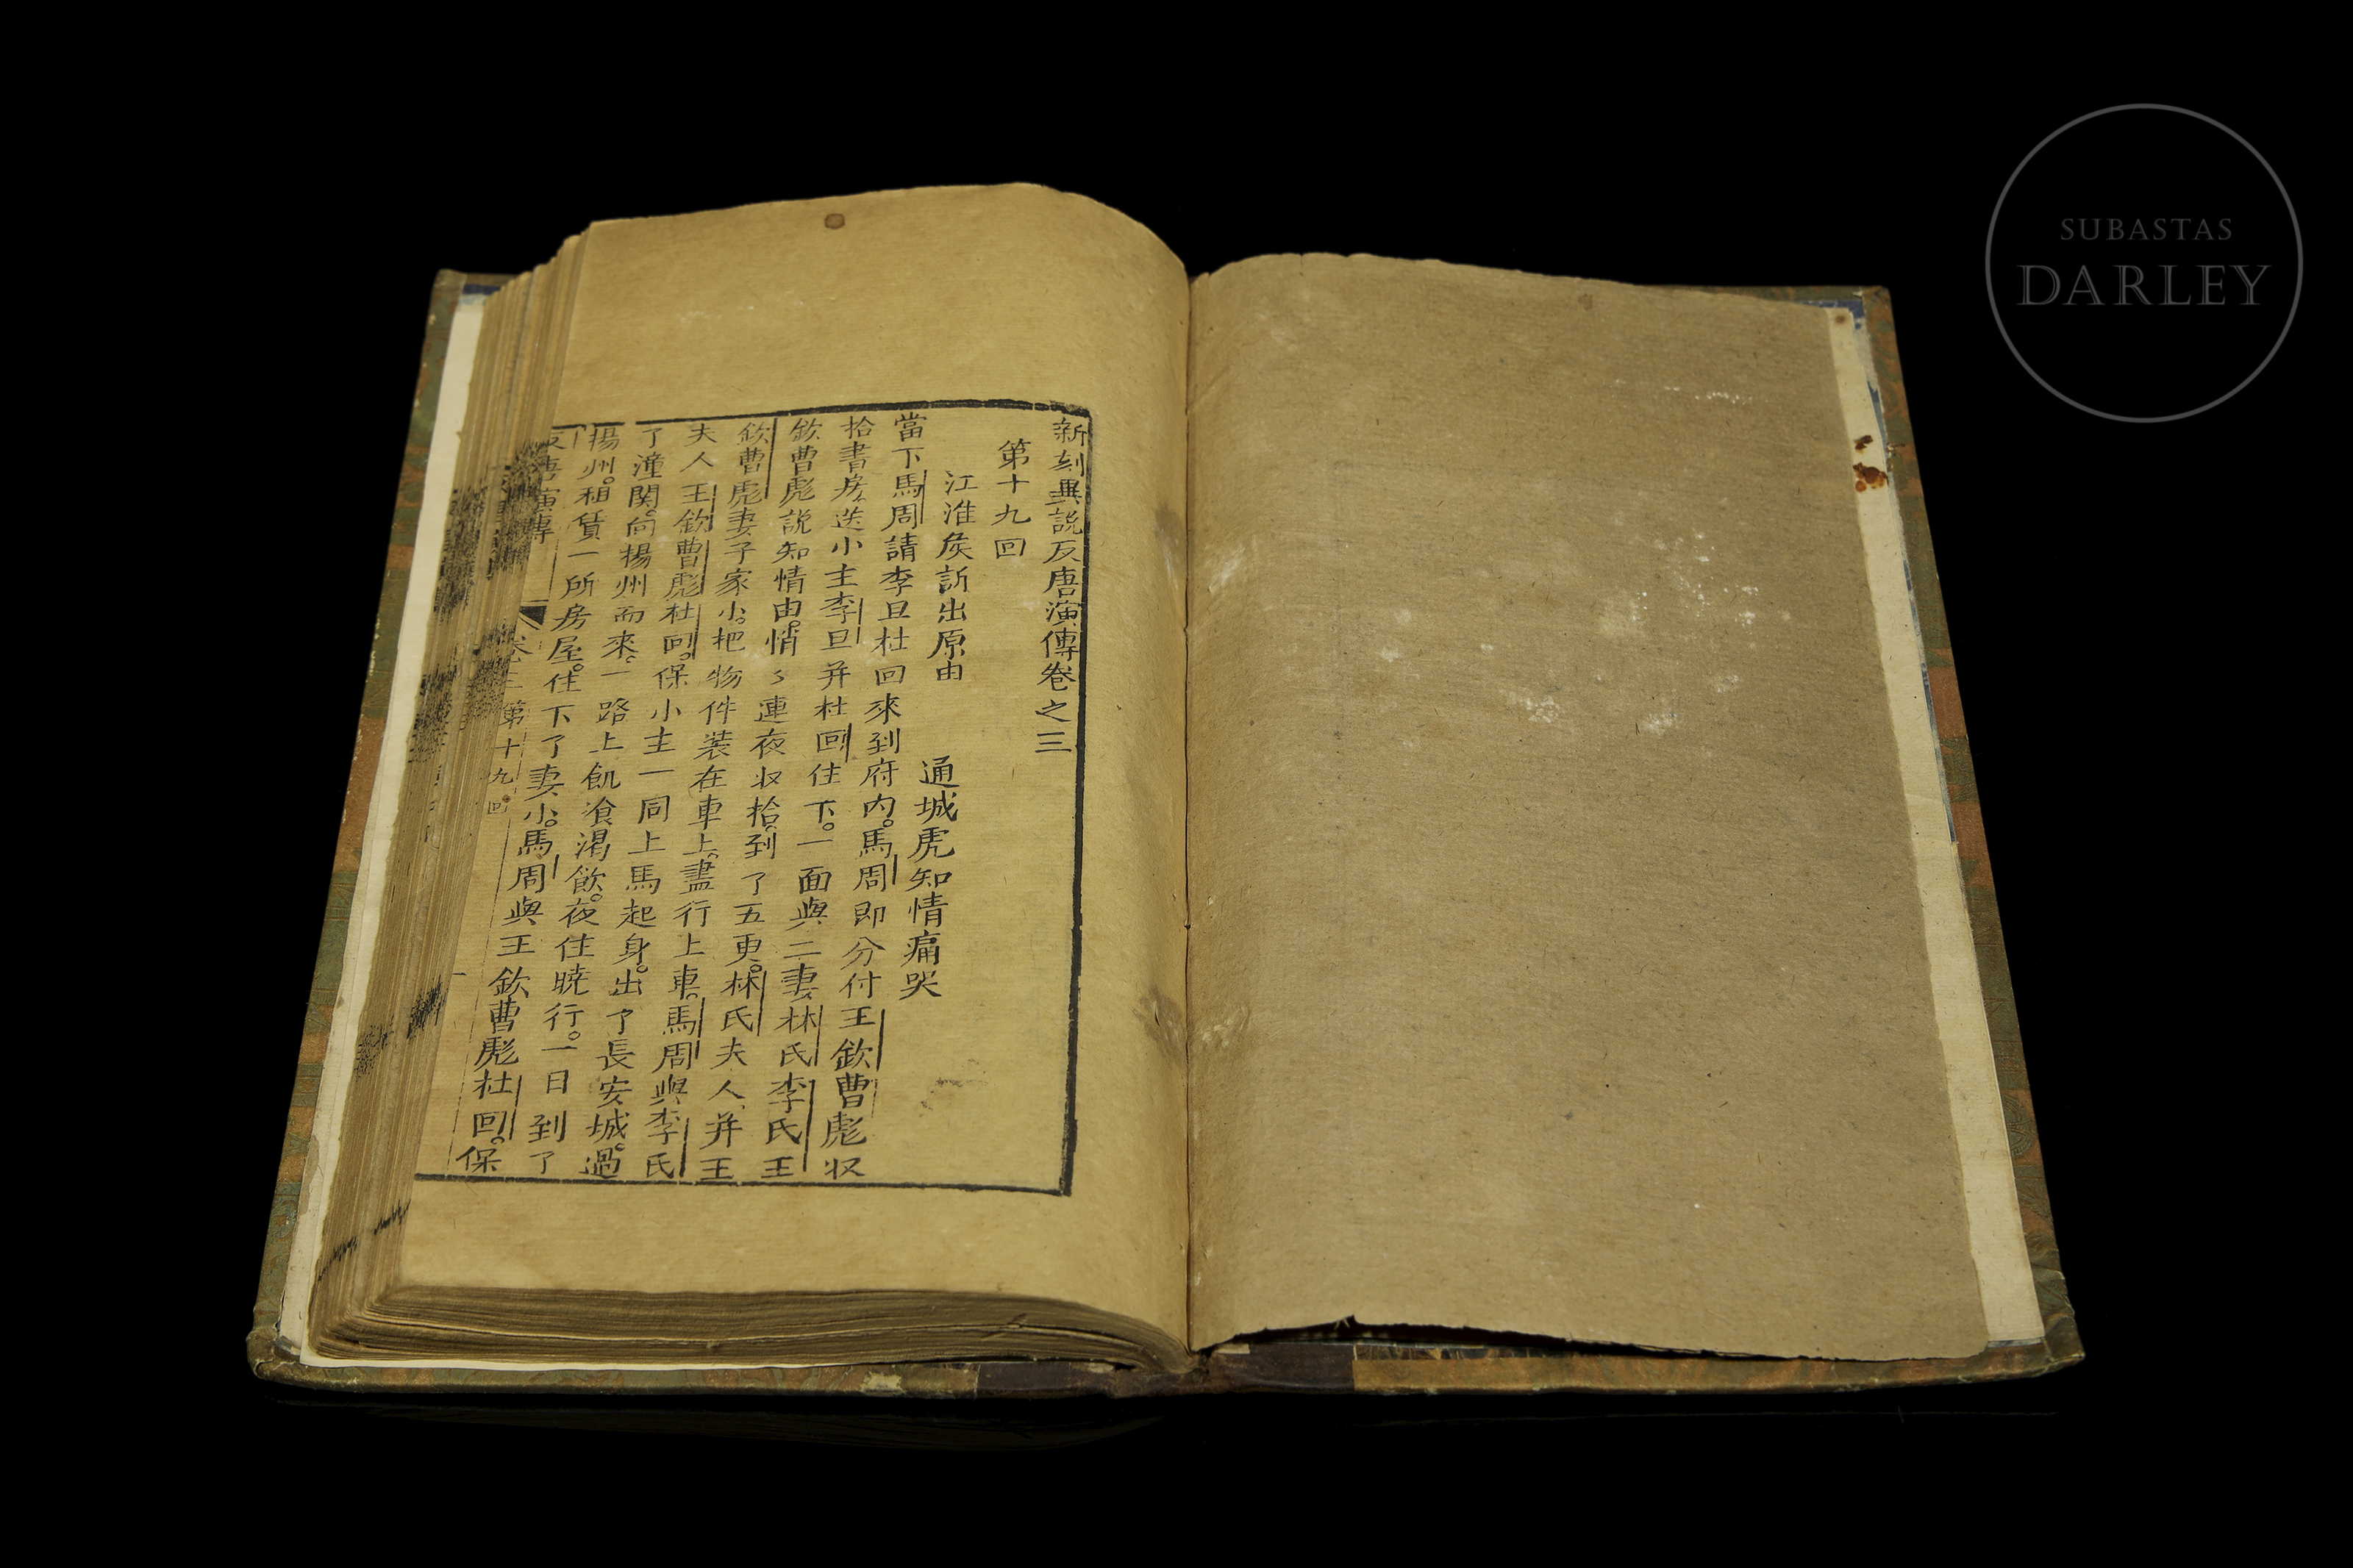 新刻異説反唐演傳卷之三
第十九回
江淮侯訴出原由 通城虎知情痛哭
當下馬周請李旦杜回來到府内。馬周即分付王欽曹彪収
拾書房。送小主李旦并杜回住下。一面與二妻林氏李氏王
欽曹彪説知情由。悄〻連夜収拾。到了五更。林氏夫人并王
欽曹彪妻子家小。把物件裝在車上。盡行上車。馬周與李氏
夫人王欽曹彪杜回。保小主一同上馬起身。出了長安城。過
了潼関。向揚州而來。一路上飢飡渴飲。夜住曉行。一日到了
揚州。租賃一所房屋。住下了妻小。馬周與王欽曹彪杜回。保
反唐演傳 卷三 第十九回
SUBASTAS
DARLEY